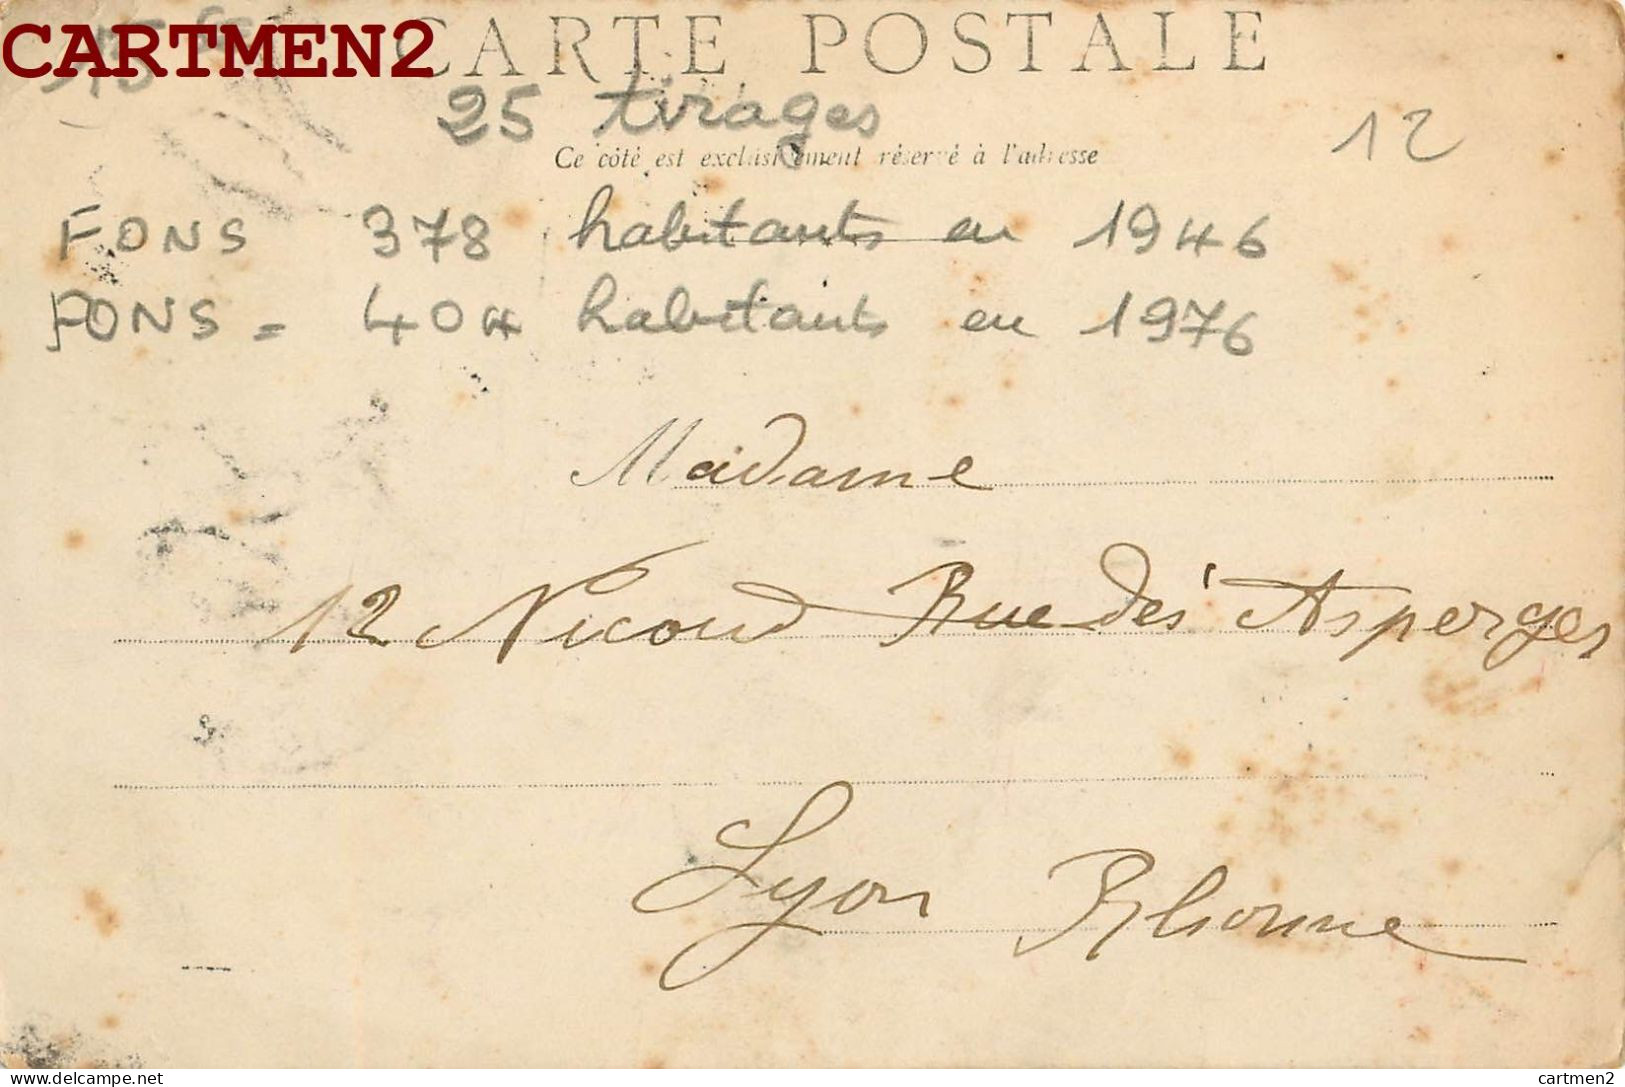 CARTMEN2
CARTE POSTALE
25 tirages
12
Ce côté est exclusivement réservé à l'adresse
FONS 378 habitants en 1946
FONS = 404 habitants en 1976
Madame
12 Nicoud Rue des Asperges
Lyon Rhonne
delcampe.net
cartmen2